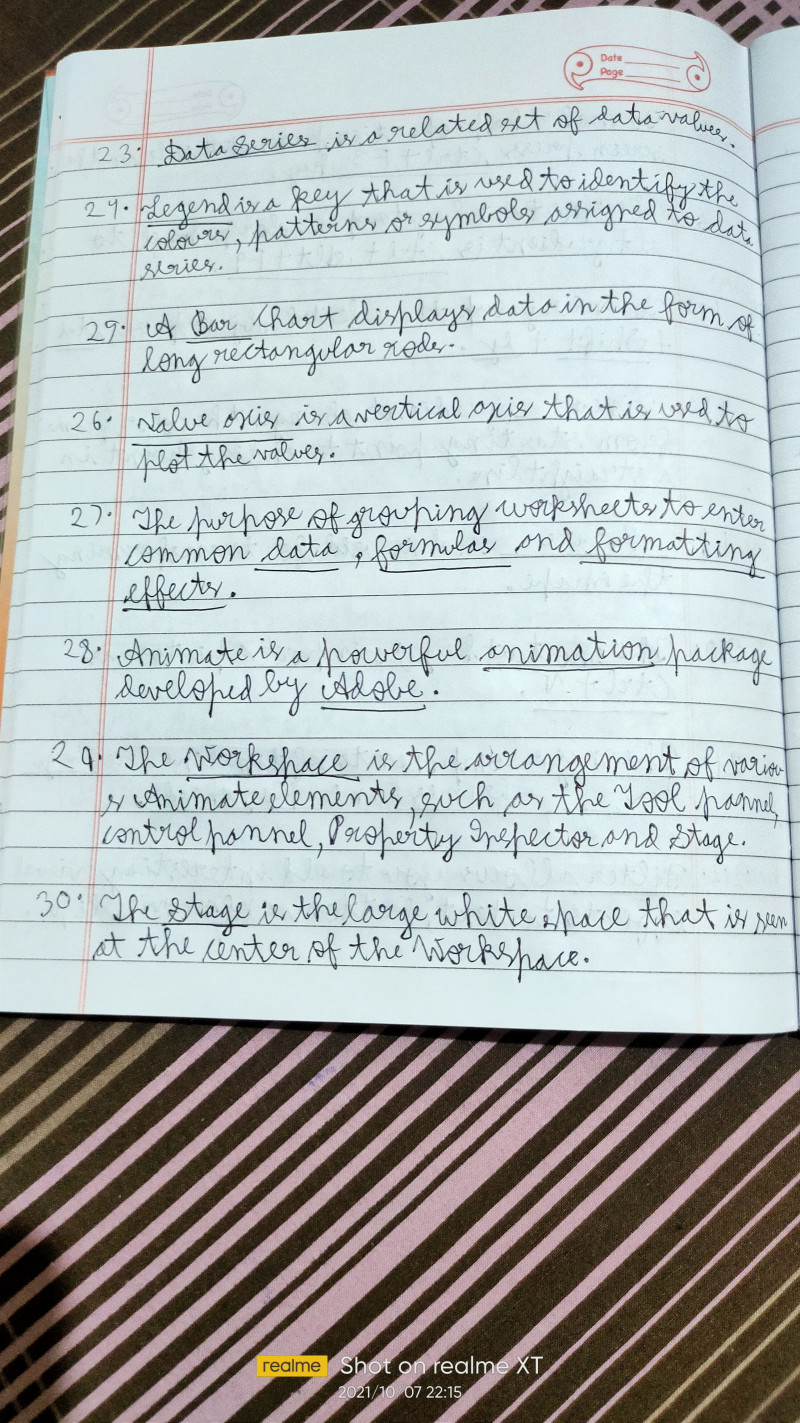 Date
Page
23. Data Series is a related set of data values.
24. Legend is a key that is used to identify the
colours, patterns or symbols assigned to data
series.
25. A Bar Chart displays data in the form of
long rectangular rods.
26. Value axis is a vertical axis that is used to
plot the values.
27. The purpose of grouping worksheets to enter
common data, formulas and formatting
effects.
28. Animate is a powerful animation package
developed by Adobe.
29. The Workspace is the arrangement of variou
s Animate elements, such as the Tool pannel,
control pannel, Property Inspector and Stage.
30. The Stage is the large white space that is seen
at the center of the Workspace.
realme Shot on realme XT
2021/10/07 22:15